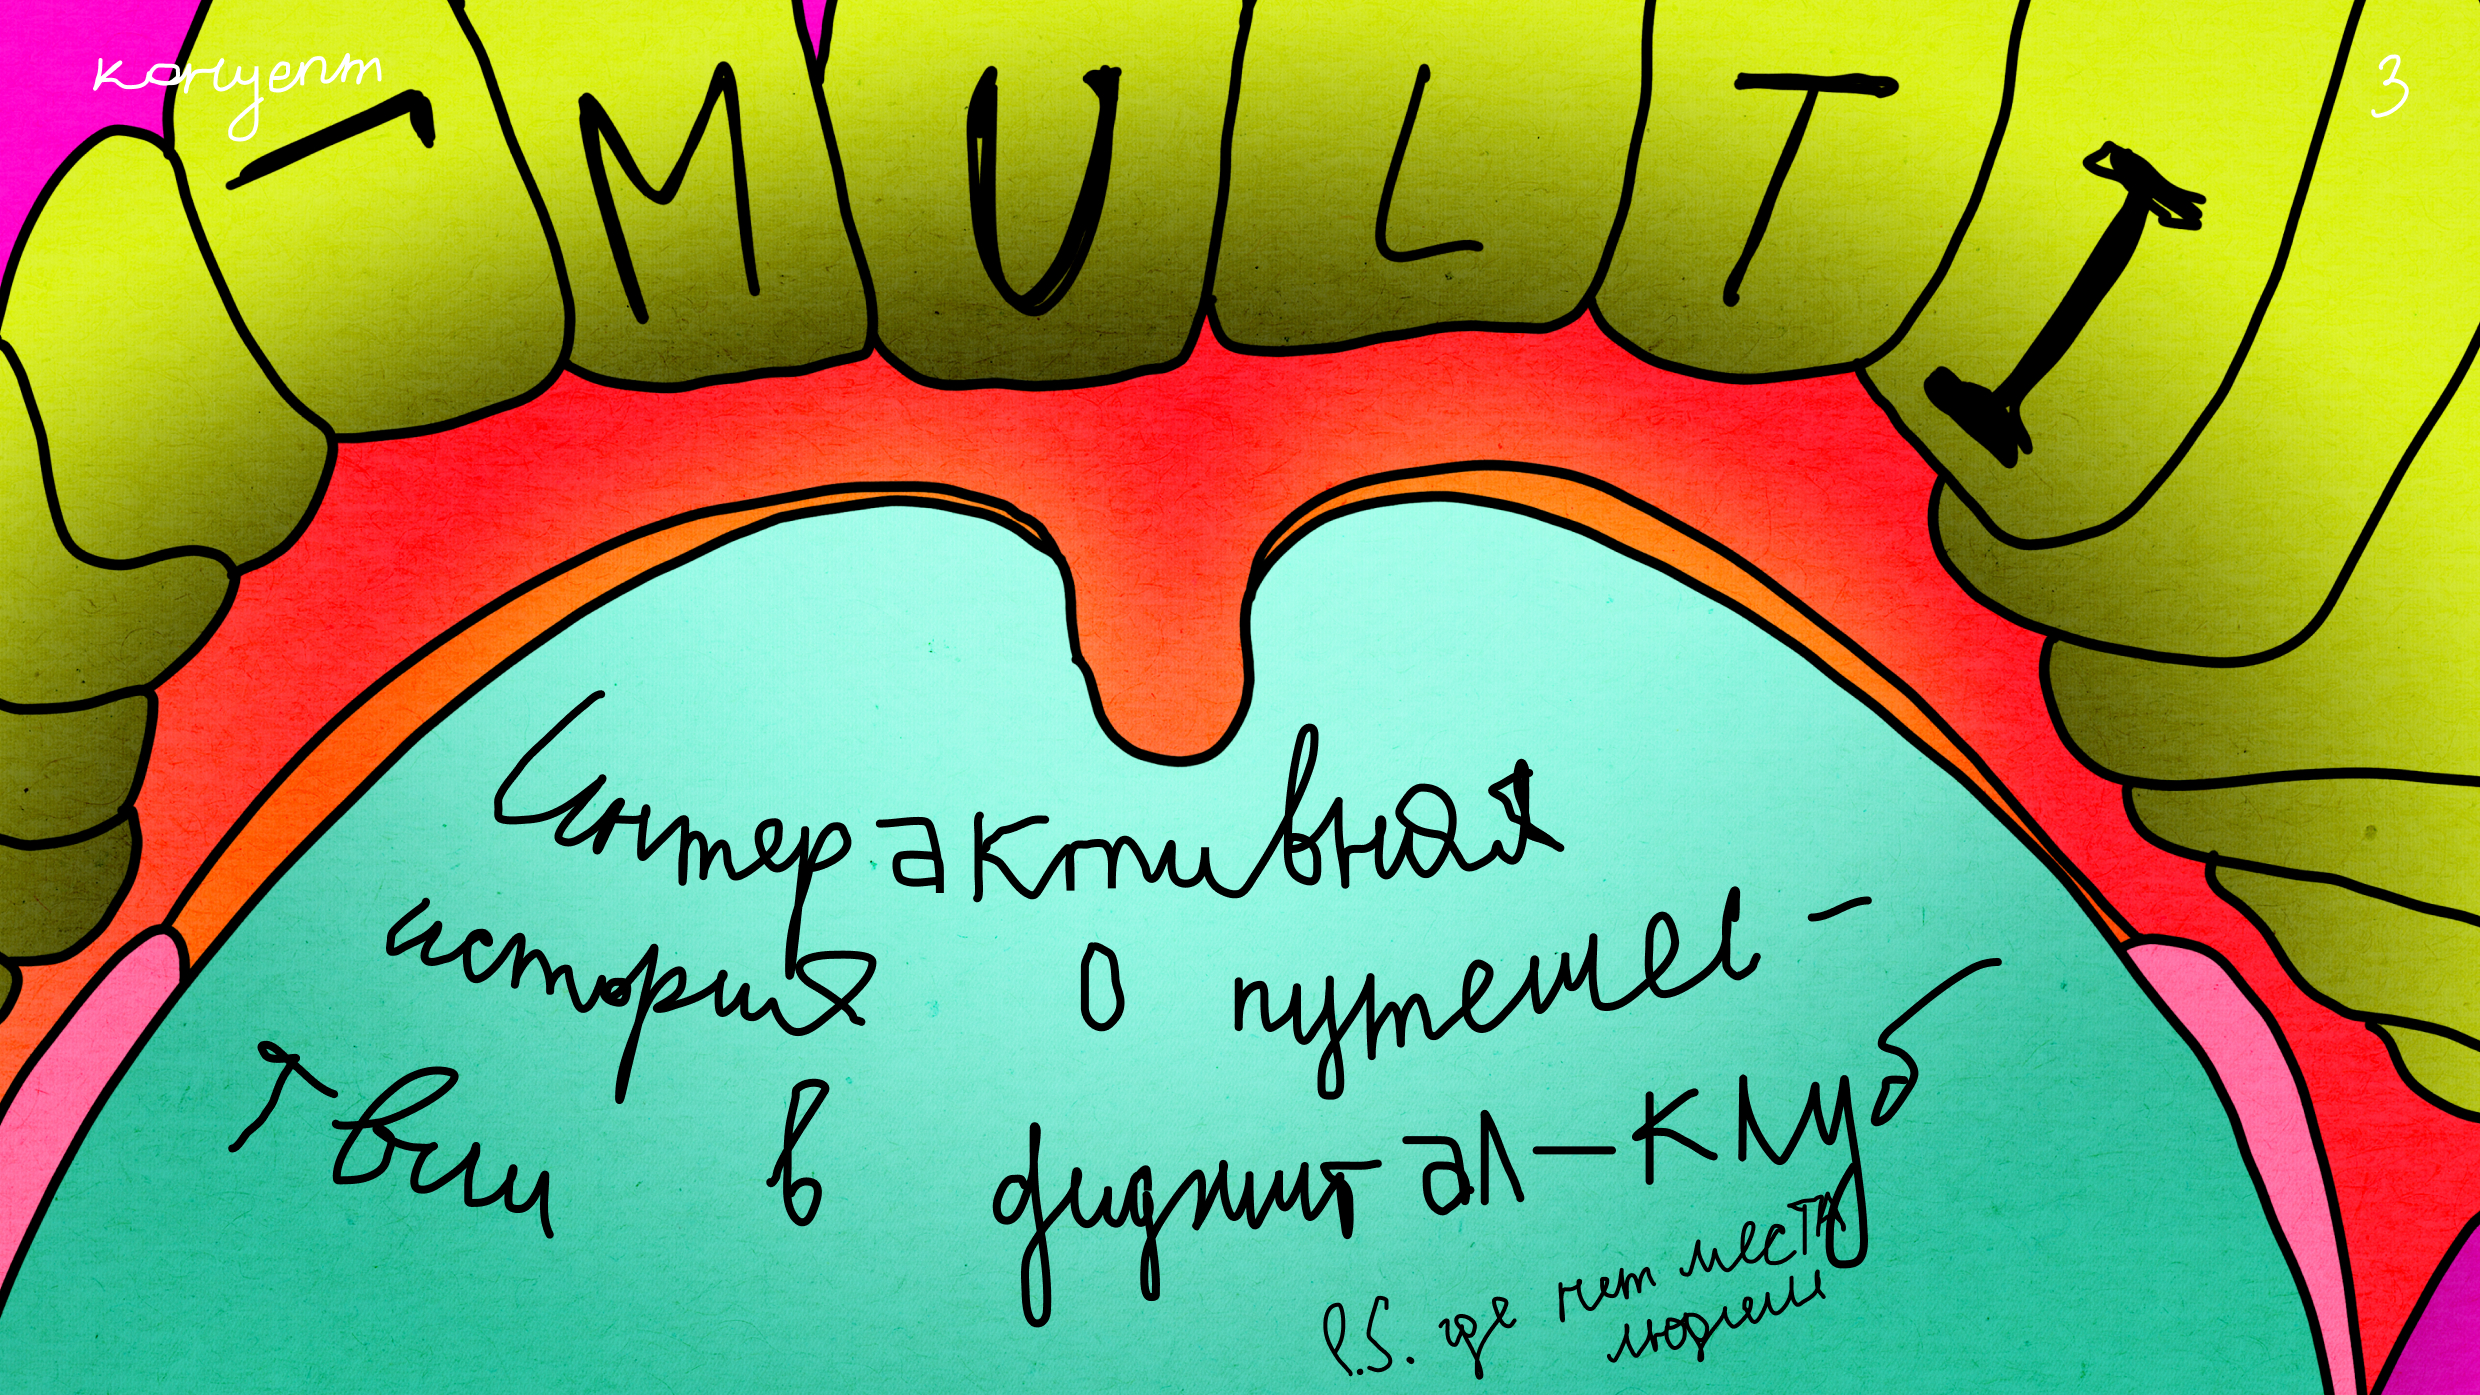 концепт
3
– MULTI
Интерактивная
история о путешес-
твии в диджитал-клуб
P.S. где нет места
людям